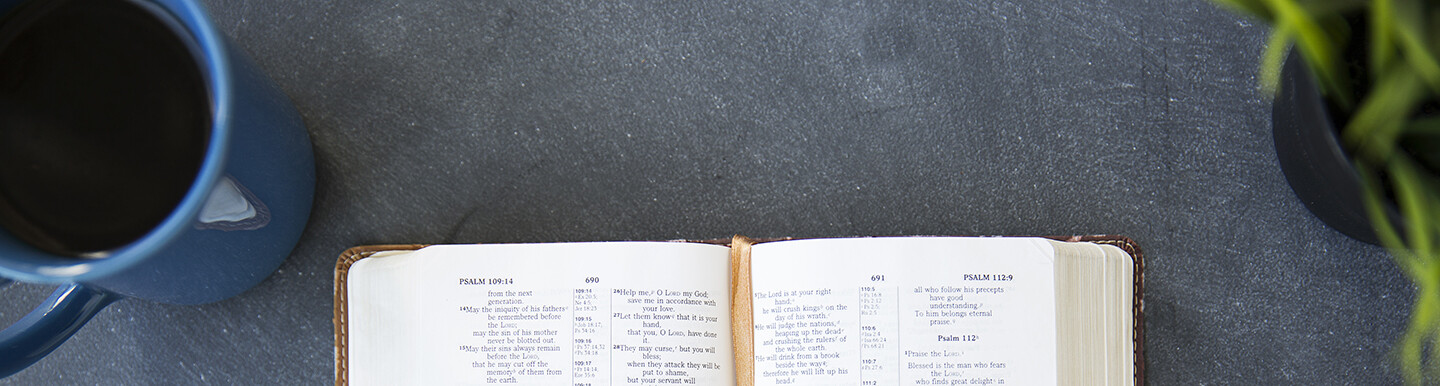 PSALM 109:14
690
from the next
generation.
14May the iniquity of his fathers
be remembered before
the LORD;
may the sin of his mother
never be blotted out.
15May their sins always remain
before the LORD,
that he may cut off the
memory of them from
the earth.
109:14
109:15
109:16
109:17
26Help me, O LORD my God;
save me in accordance with
your love.
27Let them know that it is your
hand,
that you, O LORD, have done
it.
28They may curse, but you will
bless;
when they attack they will be
put to shame,
but your servant will
691
PSALM 112:9
5The Lord is at your right
hand;
he will crush kings on the
day of his wrath.
6He will judge the nations,
heaping up the dead
and crushing the rulers of
the whole earth.
7He will drink from a brook
beside the way;
therefore he will lift up his
head.
110:5
110:6
110:7
111:2
all who follow his precepts
have good
understanding.
To him belongs eternal
praise.
Psalm 112
1Praise the LORD.
Blessed is the man who fears
the LORD,
who finds great delight in